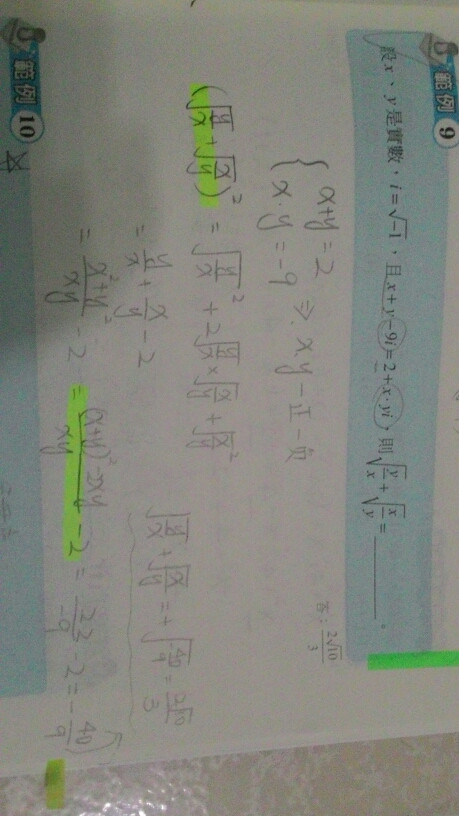 範例 9
設x、y是實數，i=√-1，且x+y-9i=2+x·yi，則√(y/x)+√(x/y)=________。
答：2√10/3
{ x+y=2
x·y=-9 ⇒ x.y 一正一負
(√(y/x)+√(x/y))² = √(y/x)² + 2√(y/x)×√(x/y) + √(x/y)²
= y/x + x/y - 2
= (x²+y²)/xy - 2 = ((x+y)²-2xy)/xy - 2 = 22/-9 - 2 = -40/9
√(y/x)+√(x/y)=
2√10/3
範例 10